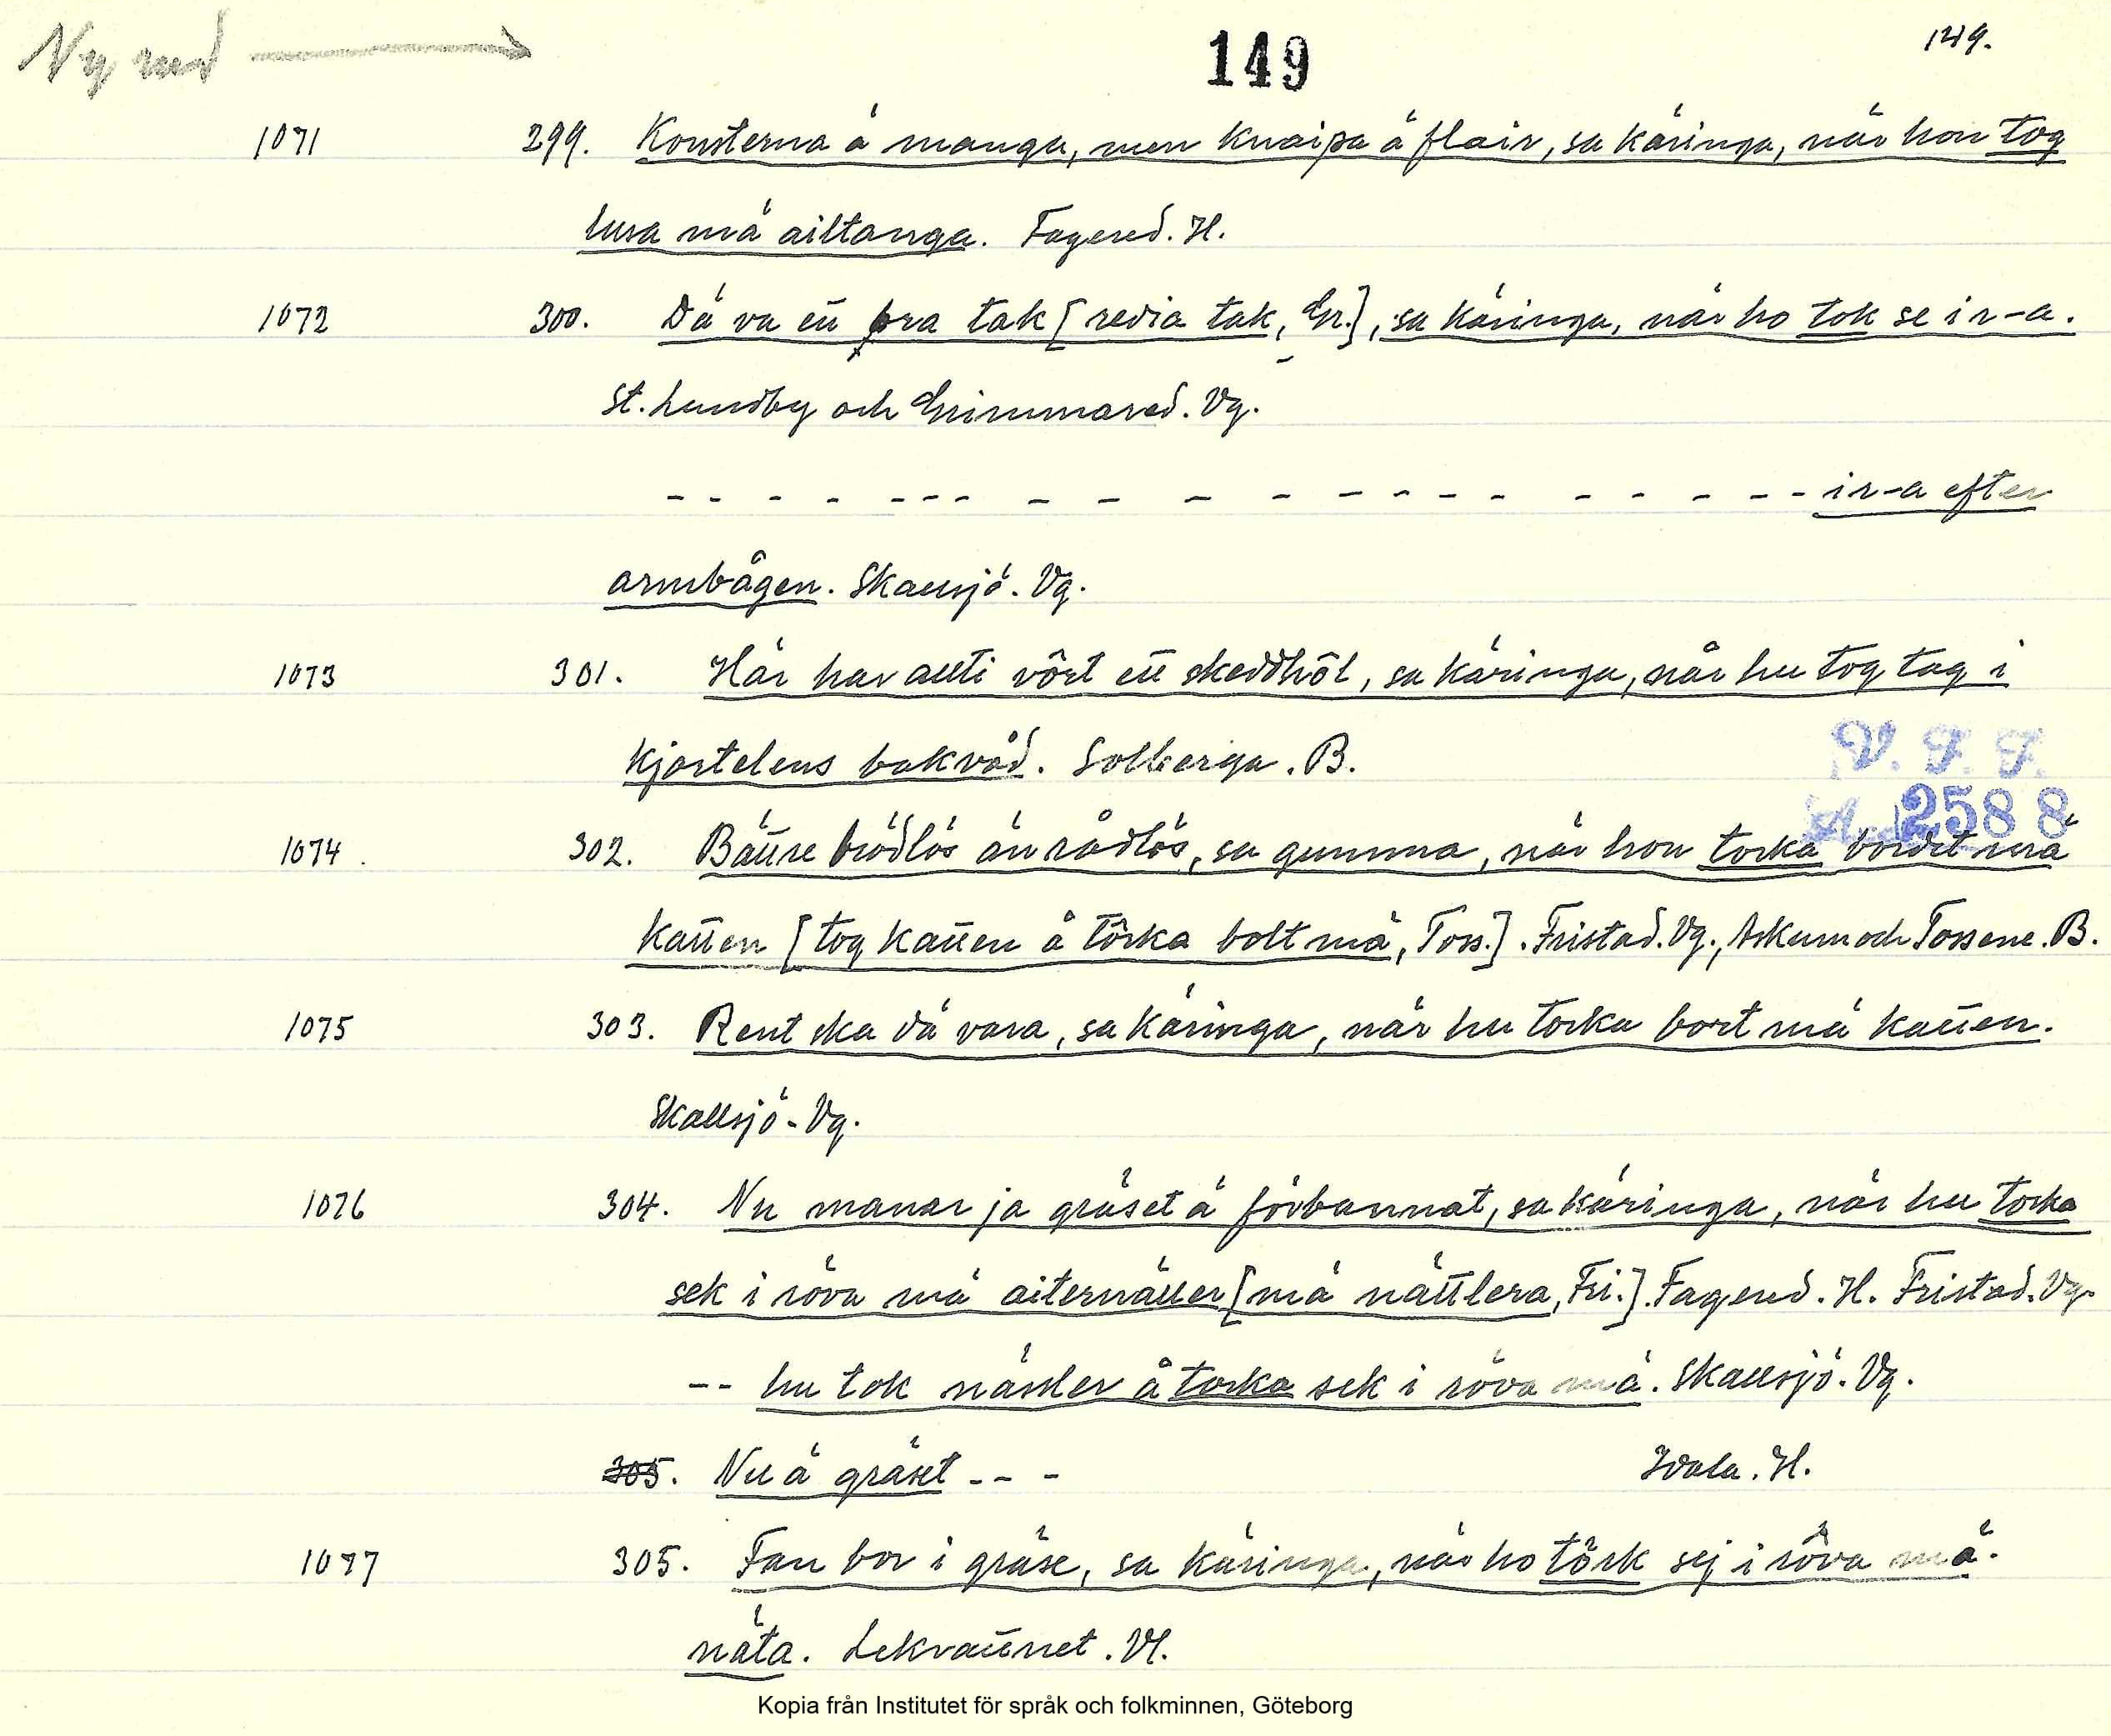 Ny rad →
149
149.
1071 299. Konsterna ä manga, men knaipa ä flair, sa käringa, när hon tog
lusa mä ailtanga. Fagered. H.
1072 300. Dä va ett bra tak [redia tak, Gr.], sa käringa, när ho tok se i r-a.
St. Lundby och Grimmared. Vg.
- - - - - - - - - - - - - - - - - - - - i r-a efter
armbågen. Skallsjö. Vg.
1073 301. Här har allti vôrt ett skeddhôl, sa käringa, när hu tog tag i
kjortelens bakvåd. Solberga. B.
V. F. F.
2588
1074. 302. Bättre brödlös än rådlös, sa gumma, när hon torka bordet mä
katten [tog katten å tôrka bolt mä, Toss.]. Fristad. Vg., Askum och Tossene. B.
1075 303. Rent ska dä vara, sa käringa, när hu torka bort mä katten.
Skallsjö. Vg.
1076 304. Nu manar ja gräset ä förbannat, sa käringa, när hu torka
sek i röva mä aiternäller [mä nättlera, Fri.]. Fagered. H. Fristad. Vg.
-- hu tok nässler å torka sek i röva mä. Skallsjö. Vg.
305. Nu ä gräset - - - Idala. H.
1077 305. Fan bor i gräse, sa käringa, när ho tôrk sej i rôva mä.
näta. Lekvattnet. Vl.
Kopia från Institutet för språk och folkminnen, Göteborg